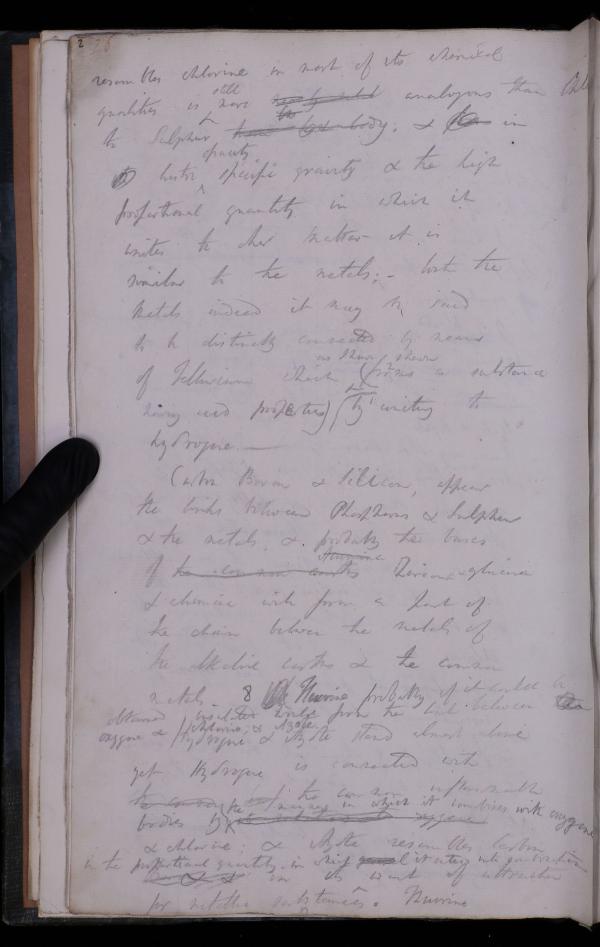 2
resembles chlorine in most of its chemical
qualities is still more analogous than
to Sulphur & in
lustre opacity specific gravity & the high
proportional quantity in which it
unites to other matter it is
similar to the metals; - but the
metals indeed it may be said
to be distinctly connected by means
of Tellurium which as I have shewn forms a substance
having acid properties by uniting to
hydrogene. —
Carbon Boron & Silicon, appear
the links between Phosphorus & Sulphur
& the metals, & probably the bases
of the common earths Zircona glucina
& alumina will form a part of
the chain between the metals of
the alkaline earths & the common
metals. Fluorine probably if it could be
obtained insulated would form the link between
oxygene & chlorine; & Azote
Hydrogene & Azote stand almost alone
yet Hydrogene is connected with
the common inflammable
bodies by the manner in which it combines with oxygene
& chlorine; & Azote resembles Carbon
in the proportional quantity in which it enters into combination
in its want of attraction
for metallic substances. Fluorine